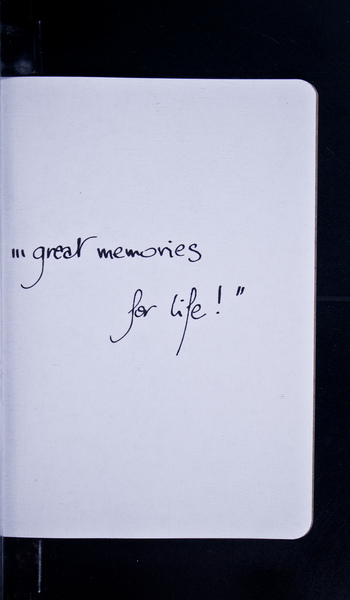 "... great memories
for life!"